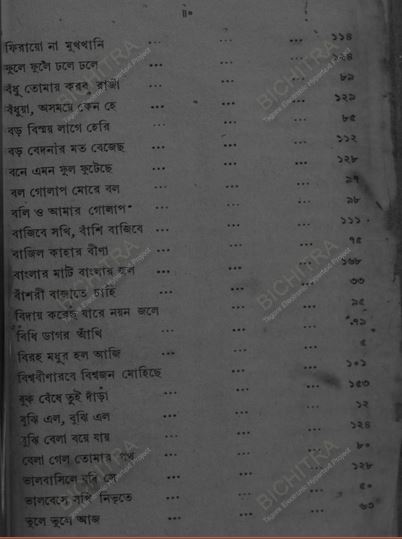 ॥०
ফিরায়ো না মুখখানি ... ... ১১৪
ফুলে ফুলে ঢলে ঢলে ... ... ১২৪
বঁধু তোমায় করব রাজা ... ... ৮৯
বঁধুয়া, অসময়ে কেন হে ... ... ১২৯
বড় বিস্ময় লাগে হেরি ... ... ৮৫
বড় বেদনার মত বেজেছ ... ... ১১২
বনে এমন ফুল ফুটেছে ... ... ১২৮
বল গোলাপ মোরে বল ... ... ৯৭
বলি ও আমার গোলাপ ... ... ৯৮
বাজিবে সখি, বাঁশি বাজিবে ... ... ১১১
বাজিল কাহার বীণা ... ... ৭৫
বাংলার মাটি বাংলার জল ... ... ১৬৮
বাঁশরী বাজাতে চাহি ... ... ৩৩
বিদায় করেছ যারে নয়ন জলে ... ... ৯৫
বিধি ডাগর আঁখি ... ... ৭৯
বিরহ মধুর হল আজি ... ... ৫
বিশ্ববীণারবে বিশ্বজন মোহিছে ... ... ১০১
বুক বেঁধে তুই দাঁড়া ... ... ১৫৩
বুঝি এল, বুঝি এল ... ... ১২
বুঝি বেলা বয়ে যায় ... ... ১২৪
বেলা গেল তোমার পথ ... ... ৮০
ভালবাসিলে যদি সে ... ... ১২৮
ভালবেসে সখি নিভৃতে ... ... ৫০
ভুলে ভুলে আজ ... ... ৬৩
BICHITRA
Tagore Electronic Variorum Project